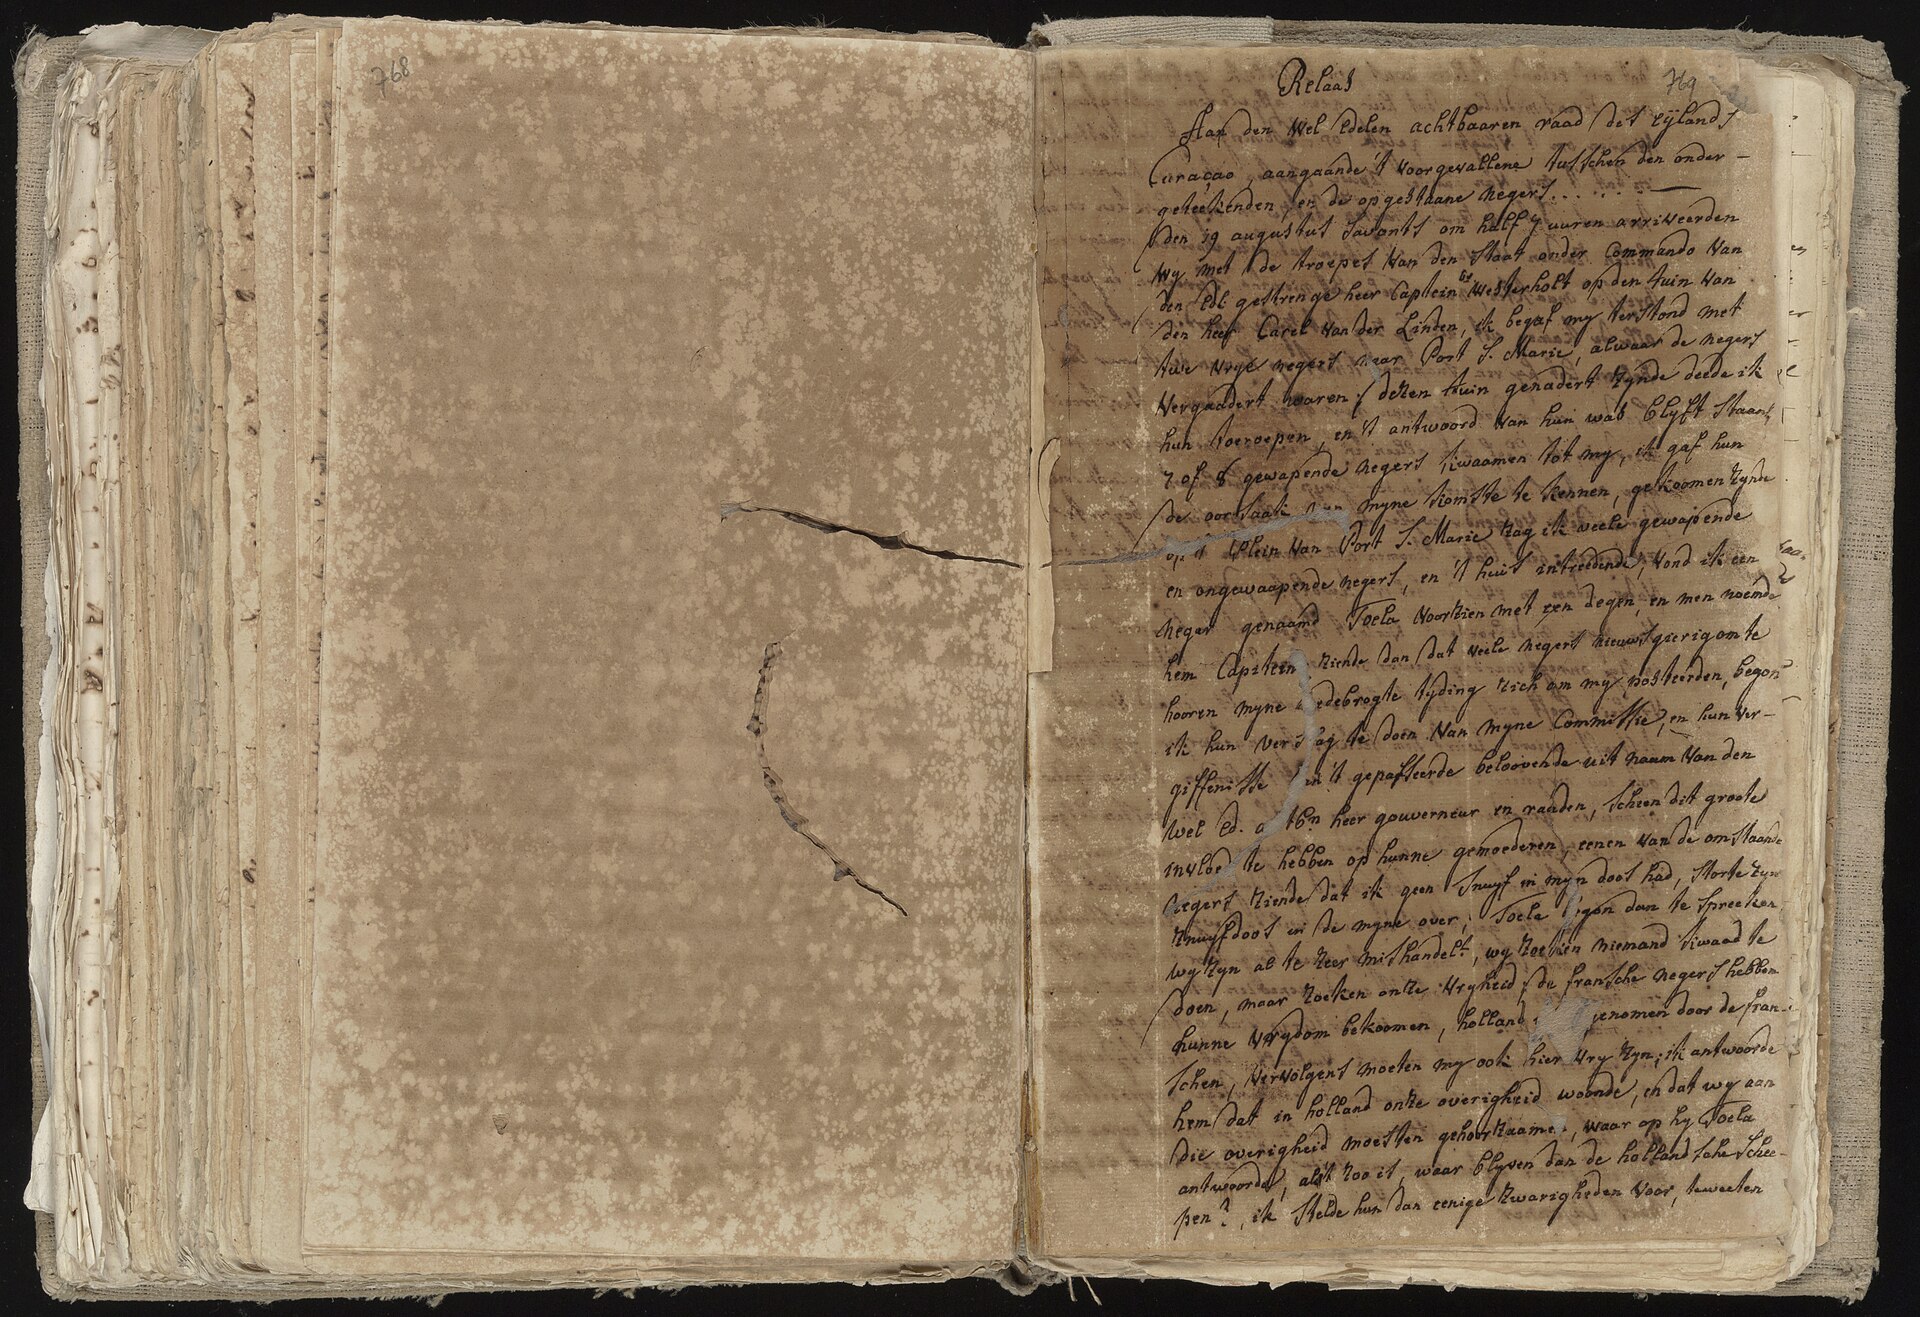 768
769
Relaas
Aan den Wel Edelen achtbaaren raad des eijlands
Curaçao, aangaande 't voorgevallene tusschen den onder-
geteekenden, en de opgestaane negers.....—
den 19 augustus savonts om half 7 uuren arriveerden
wy met de troepes van den Staat onder Commando van
den Edl. gestrenge heer Captein Westerholt op den tuin van
den heer Carel van der Linden, ik begaf my terstond met
twe vrye negers naar Port S. Marie, alwaar de negers
vergaadert waren; dezen tuin genadert zynde deede ik
hun toeroepen, en 't antwoord van hun was blyft staan,
7 of 8 gewapende negers kwaamen tot my, ik gaf hun
de oorsaak van myne komste te kennen, gekoomen zynde
op 't Plein van Port S. Marie zag ik veele gewapende
en ongewaapende negers, en 't huis intreedende, vond ik een
neger genaamd Toela voorzien met een degen, en men noemde
hem Capitein ziende dan dat veele negers nieuwsgierig om te
hooren myne medebrogte tyding zich om my posteerden, begon
ik hun verslag te doen van myne Commissie, en hun ver-
giffenisse van 't gepasseerde beloovende uit naam van den
Wel Ed. a tbn heer gouverneur en raaden, scheen dit groote
invloed te hebben op hunne gemoederen, eenen van de omstaande
negers ziende dat ik geen Snuyf in myn doos had, storte zyn
snuyfdoos in de myne over; Toela begon dan te spreeken
wy zyn al te zeer mishandelt, wy zoeken niemand kwaad te
doen, maar zoeken onze vryheid, de fransche negers hebben
hunne vrydom bekoomen, holland genomen door de fran-
schen, vervolgens moeten my ook hier vry zyn; ik antwoorde
hem dat in holland onze overigheid woonde, en dat wy aan
die overigheid moesten gehoorzaamen, waar op hy Toela
antwoorde, als't zoo is, waar blyven dan de hollandsche schee-
pen?, ik stelde hun dan eenige zwarigheden voor, teweeten